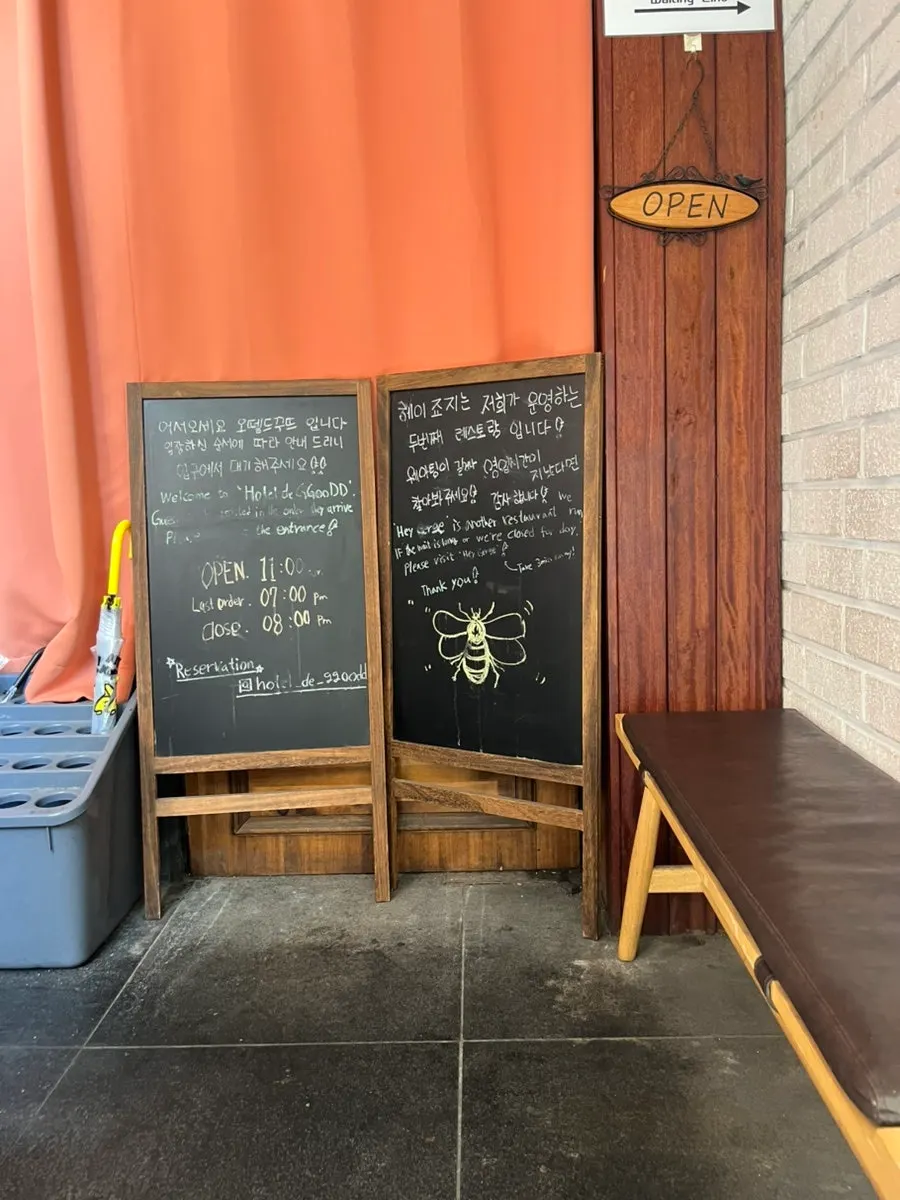 Waiting Line
OPEN
어서오세요 오뗄드꾸뜨 입니다
입장하신 순서에 따라 안내 드리니
입구에서 대기해주세요
Welcome to "Hotel de GGooDD".
in the order they arrive
the entrance
OPEN. 11:00
Last order. 07:00 pm
Close. 08:00 pm
Reservation
hotel_de_ggoodd
헤이 죠지는 저희가 운영하는
두번째 레스토랑 입니다
웨이팅이 길거나 영업시간이
지났다면
찾아봐주세요 감사합니다 we
"Hey is another restaurant run
If the wait is long or we're closed for day,
Please visit "Hey
Take
Thank you